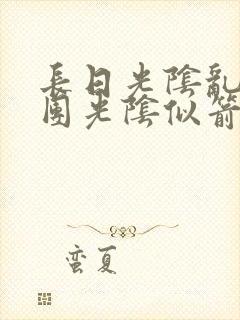 長日光陰亂
團光陰似箭
蛮夏